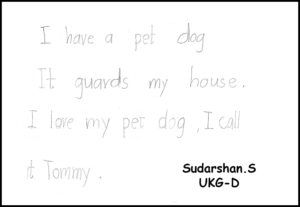 I have a pet dog
It guards my house.
I love my pet dog, I call
it Tommy.
Sudarshan.S
UKG-D